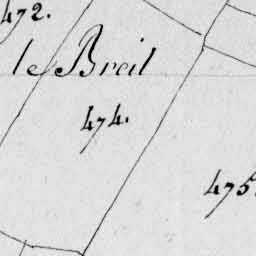 472.
le Breil
474.
475.